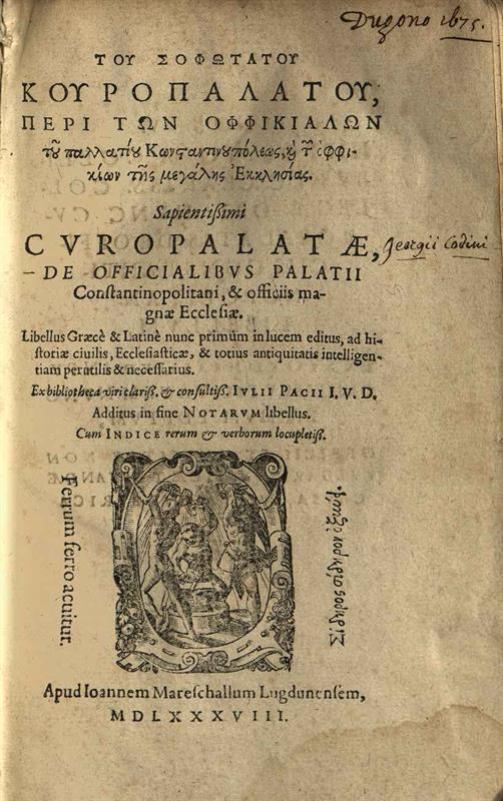 Dugono 1675.
ΤΟΥ ΣΟΦΩΤΑΤΟΥ
ΚΟΥΡΟΠΑΛΑΤΟΥ,
ΠΕΡΙ ΤΩΝ ΟΦΦΙΚΙΑΛΩΝ
τοῦ παλλατίου Κωνσταντινουπόλεως, καὶ τῶν ὀφφι-
κίων τῆς μεγάλης Ἐκκλησίας.
Sapientißimi
CVROPALATÆ, Georgii Codini
DE OFFICIALIBVS PALATII
Constantinopolitani, & officiis ma-
gnæ Ecclesiæ.
Libellus Græcè & Latinè nunc primùm in lucem editus, ad hi-
storiæ ciuilis, Ecclesiasticæ, & totius antiquitatis intelligen-
tiam perutilis & necessarius.
Ex bibliotheca viri clariß. & consultiß. IVLII PACII I. V. D.
Additus in fine NOTARVM libellus.
Cum INDICE rerum & verborum locupletiß.
Ferrum ferro acuitur.
Apud Ioannem Mareschallum Lugdunensem,
MDLXXXVIII.